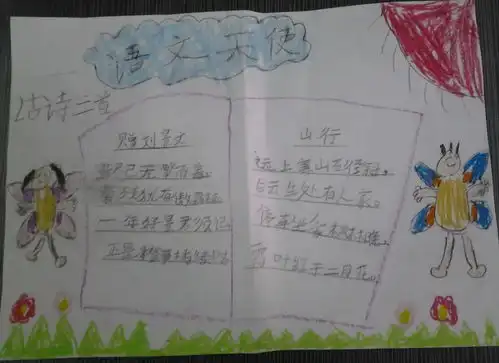 语文天使
古诗二首
赠刘景文
荷尽已无擎雨盖。
菊残犹有傲霜枝。
一年好景君须记
正是橙黄橘绿
山行
远上寒山石径斜。
白云生处有人家。
停车坐爱枫林晚。
霜叶红于二月花。